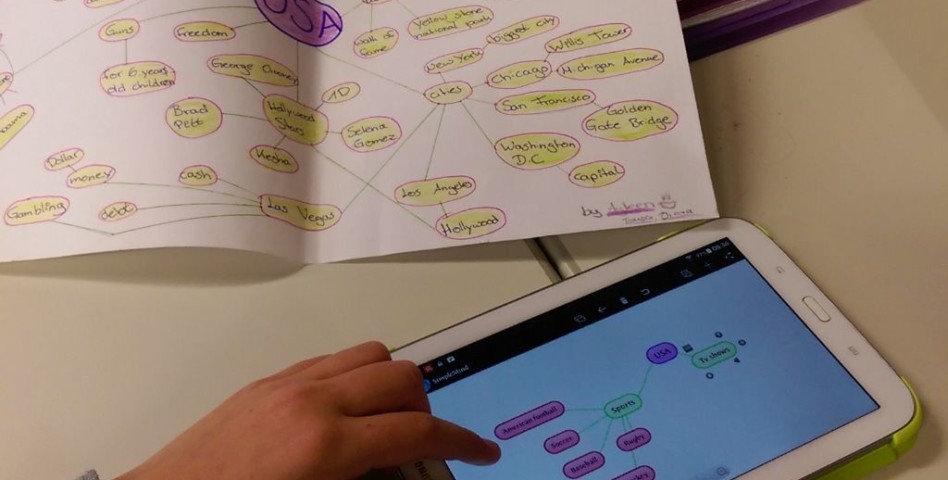 USA
Guns
Freedom
Walk of
fame
Yellow stone
national park
biggest city
Willis Tower
New York
Chicago
Michigan Avenue
for 6 years
old children
George Clooney
1D
cities
San Francisco
Golden
Gate Bridge
Brad
Pitt
Hollywood
Stars
Selena
Gomez
Kesha
Washington
D.C.
capital
Dollar
money
cash
Los Angeles
Gambling
debt
Las Vegas
Hollywood
by
SimpleMind
USA
Tv shows
Sports
American football
Soccer
Rugby
Baseball